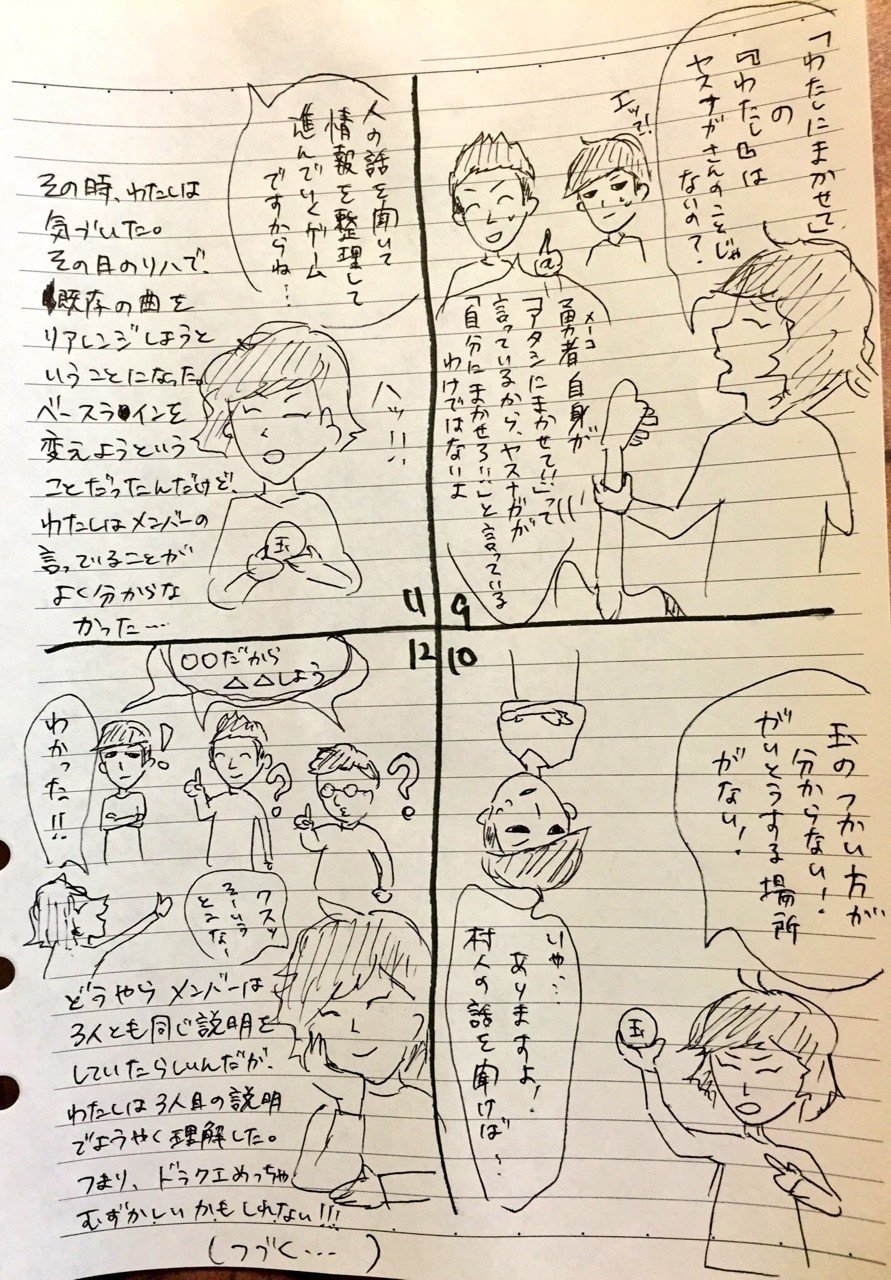 「わたしにまかせて」
の
『わたし』は
ヤスナガさんのことじゃ
ないの?
エッて!
勇者自身が
メーコ
「アタシにまかせて!!」って
言っているから、ヤスナガが
「自分にまかせろ!!」と言っている
わけではないよ
9
玉のつかい方が
分からない!
がいとうする場所
がない!
玉
いや…
ありますよ!
村人の話を聞けば…
10
人の話を聞いて
情報を整理して
進んでいくゲーム
ですからね…
ハッ!!
玉
その時、わたしは
気づいた。
その日のリハで、
既存の曲を
リアレンジしようと
いうことになった。
ベースラインを
変えようという
ことだったんだけど、
わたしはメンバーの
言っていることが
よく分からな
かった…
11
12
〇〇だから
△△しよう
!
?
?
わかった!!
クスッ
そーいう
とこな〜
どうやらメンバーは
3人とも同じ説明を
していたらしいんだが、
わたしは3人目の説明
でようやく理解した。
つまり、ドラクエめっちゃ
むずかしいかもしれない!!!
(つづく…)